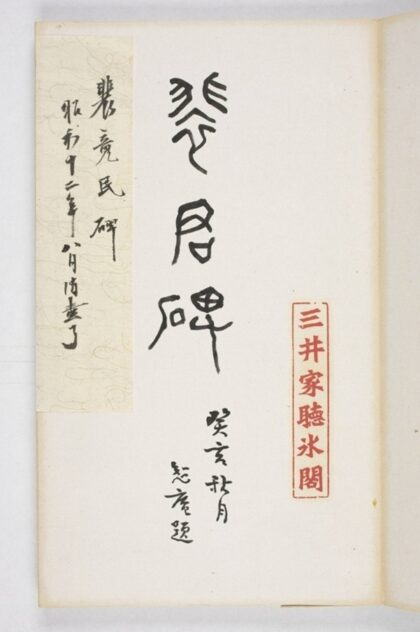 三井家聽氷閣
裴君碑
癸亥秋月
庵題
裴竟民碑
昭和十二年八月了